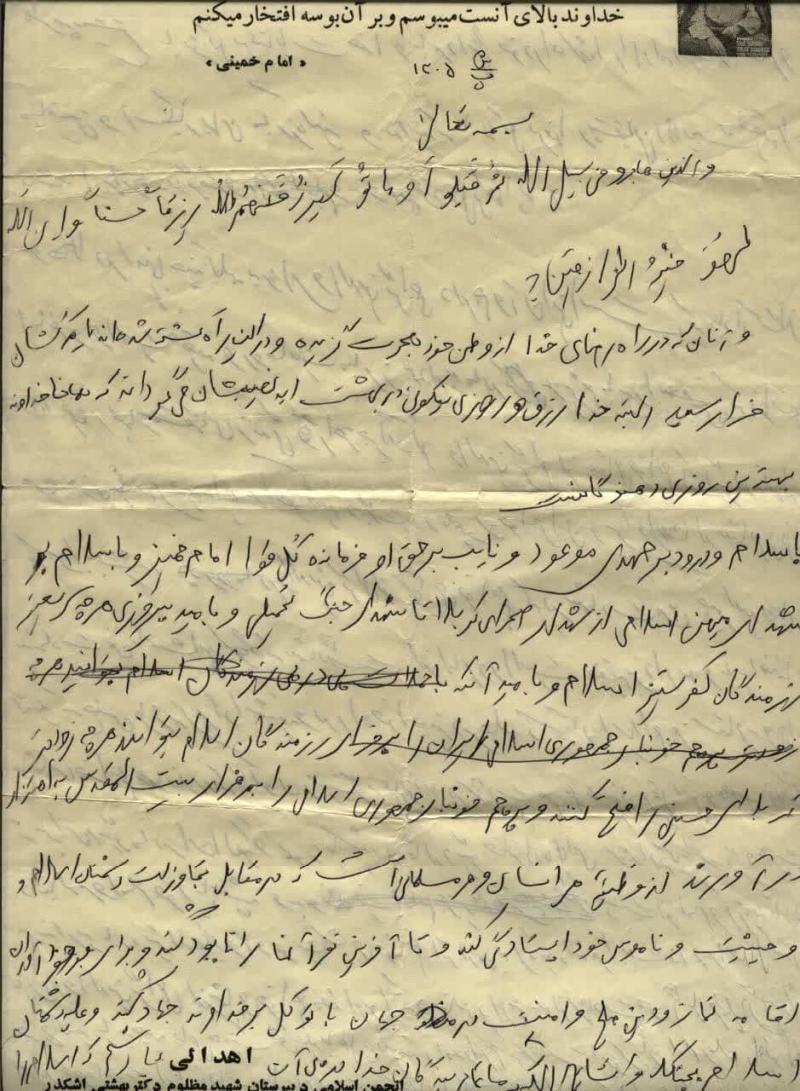 خداوند بالای آنست میبوسم و بر آن بوسه افتخار میکنم
« امام خمینی »
بسمه تعالی
والذین هاجرو فی سبیل الله ثم قتلو آو ماتو لیرزقنهم الله رزقا حسنا وان الله
لهو خیر الرازقین
و آنان که در راه رضای خدا از وطن خود هجرت گزیده و در این راه کشته شده اند یا مرگشان
فرا رسید البته خدا رزق و روزی نیکوئی در بهشت ابد نصیبشان می گرداند که همانا خداوند
بهترین روزی دهندگانست
باسلام و درود بر مهدی موعود و نایب بر حق او فرمانده کل قوا امام خمینی و با سلام بر
شهدای میهن اسلامی از شهدای صحرای کربلا تا شهدای جنگ تحمیلی و با امید پیروزی هر چه سریعتر
رزمندگان کفرستیز اسلام و با امید آنکه
رزمندگان اسلام بتوانند هر چه زودتر
کربلای حسینی را فتح کنند و پرچم خونبار جمهوری اسلامی را بر فراز بیت المقدس به اهتزاز
در آورند از وظیفه هر انسان و هر مسلمانی است که در مقابل تجاوز دشمنان اسلام و
و حیثیت و ناموس خود ایستادگی کند و تا آخرین نفر آنها را نابود کند و برای بوجود آوردن
اقامه نماز و دین و امنیت در جهان با توکل بر خداوند جهاد کند و علیه دشمنان
اسلام بجنگد و
اهدائی
انجمن اسلامی دبیرستان شهید مظلوم دکتر بهشتی اشکذر